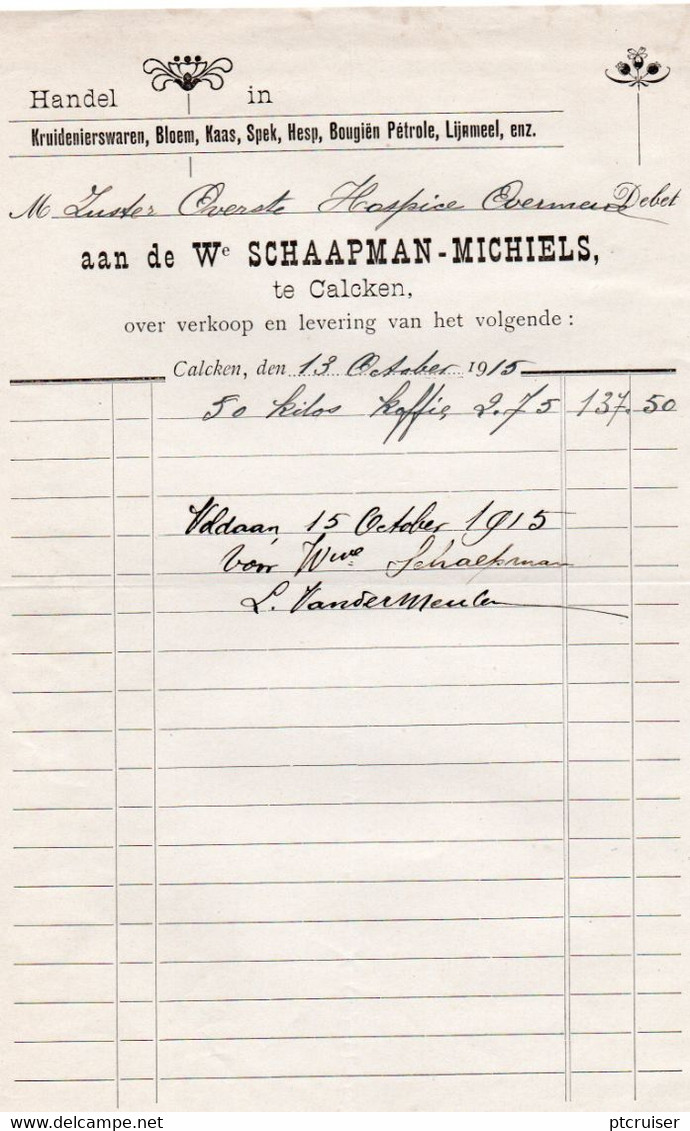 Handel in
Kruidenierswaren, Bloem, Kaas, Spek, Hesp, Bougiën Pétrole, Lijnmeel, enz.
M Zuster Overste Hospice Overmeire Debet
aan de We SCHAAPMAN-MICHIELS,
te Calcken,
over verkoop en levering van het volgende :
Calcken, den 13 October 1915
50 kilos koffie 2.75 137.50
Voldaan 15 October 1915
Voor Wwe Schaepman
L. VanderMeulen
delcampe.net
ptcruiser